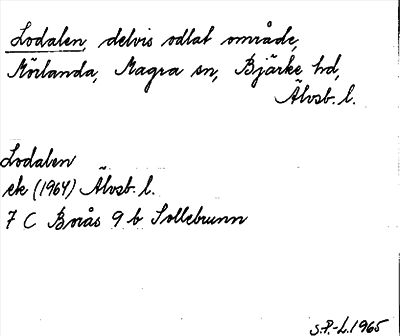 Lodalen, delvis odlat område,
Mörlanda, Magra sn, Bjärke hd,
Älvsb. l.
Lodalen
ek (1964) Älvsb. l.
7 C Borås 9 b Sollebrunn
S.P.-L. 1965